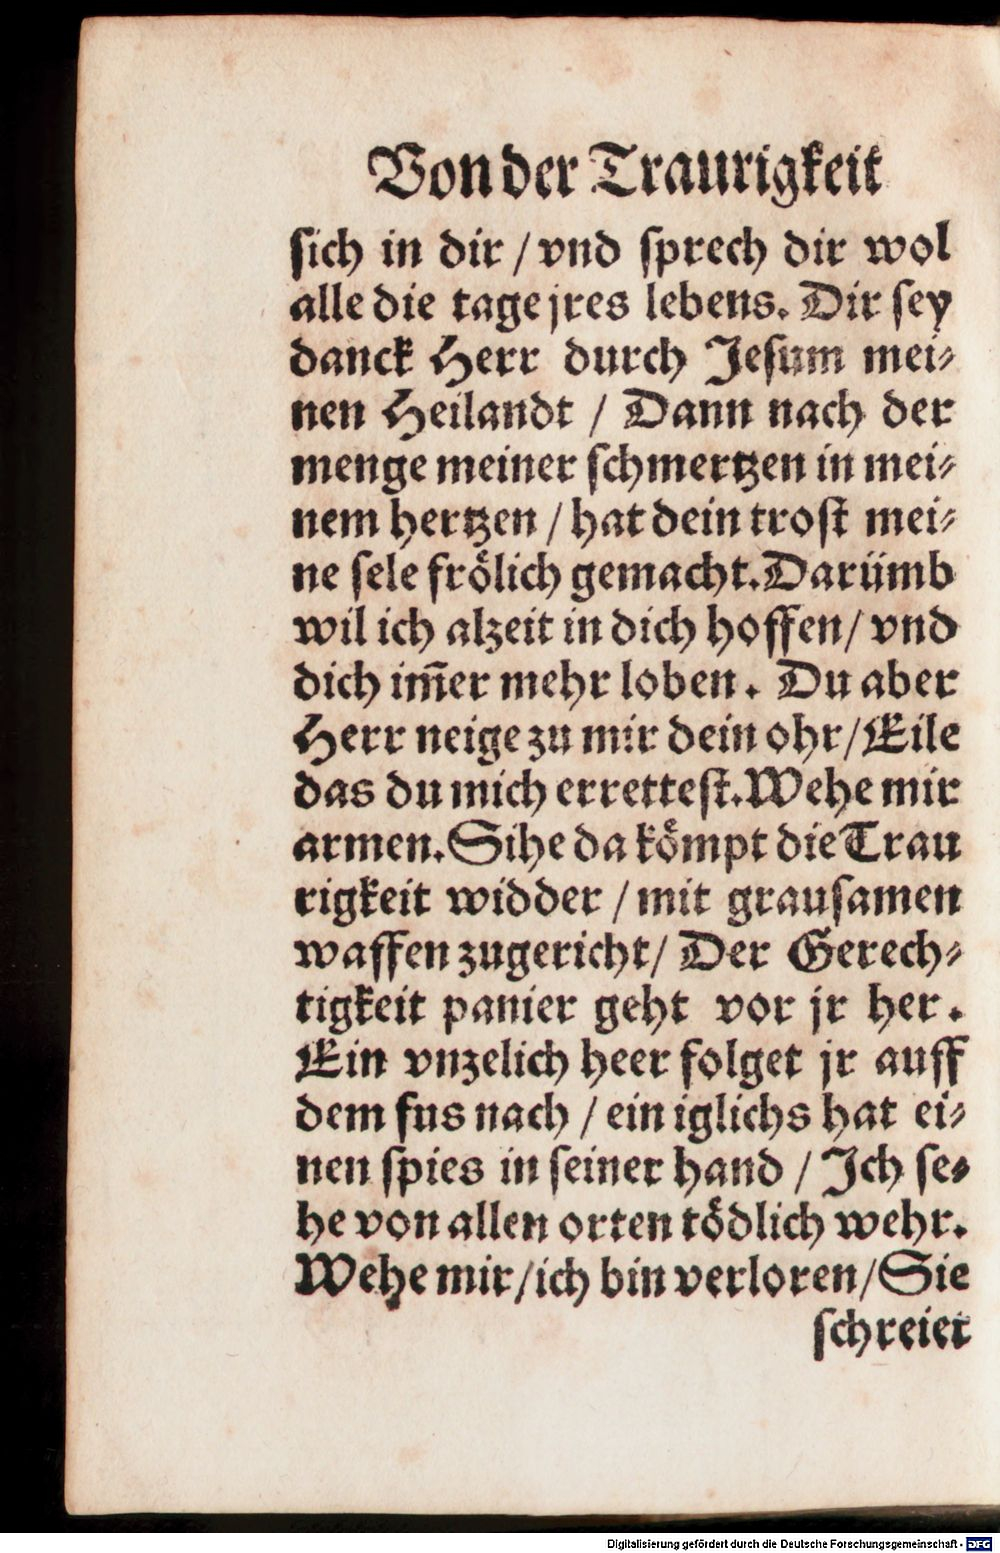 Von der Traurigkeit
sich in dir / vnd sprech dir wol
alle die tage jres lebens. Dir sey
danck Herr durch Jesum mei⸗
nen Heilandt / Dann nach der
menge meiner schmertzen in mei⸗
nem hertzen / hat dein trost mei⸗
ne sele frölich gemacht. Darümb
wil ich alzeit in dich hoffen / vnd
dich im̄er mehr loben. Du aber
Herr neige zu mir dein ohr / Eile
das du mich errettest. Wehe mir
armen. Sihe da kömpt die Trau
rigkeit widder / mit grausamen
waffen zugericht / Der Gerech⸗
tigkeit panier geht vor jr her.
Ein vnzelich heer folget jr auff
dem fus nach / ein iglichs hat ei⸗
nen spies in seiner hand / Ich se⸗
he von allen orten tödlich wehr.
Wehe mir / ich bin verloren / Sie
schreiet
Digitalisierung gefördert durch die Deutsche Forschungsgemeinschaft - DFG